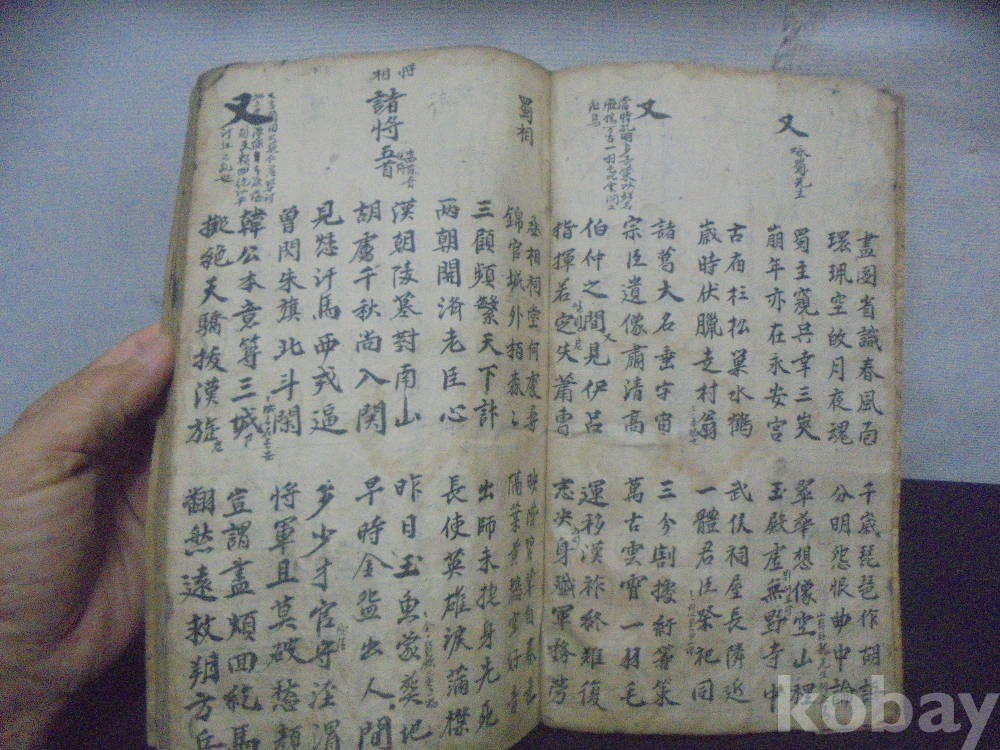 畫圖省識春風面 千歲琵琶作胡語
環珮空皈月夜魂 分明怨恨曲中論
又 咏蜀先主
蜀主窺吳幸三峽 翠華想像空山裡
崩年亦在永安宮 玉殿虛無野寺中
古庙杉松巢水鶴 武侯祠屋長隣近
歲時伏臘走村翁 一體君臣祭祀同
又
諸葛大名垂宇宙 三分割據紆籌策
宗臣遺像肅清高 萬古雲霄一羽毛
伯仲之間見伊呂 運移漢祚終難復
指揮若定失蕭曹 志決身殲軍務勞
蜀相
丞相祠堂何處尋 映階碧草自春色
錦官城外栢森々 隔葉黃鸝空好音
三顧頻繁天下計 出師未捷身先死
兩朝開濟老臣心 長使英雄淚滿襟
將相
諸將 五首
漢朝陵墓對南山 昨日玉魚蒙葬地
胡虜千秋尚入関 早時金盌出人間
見愁汗馬西戎逼 多少才官守涇渭
曾閃朱旗北斗閑 將軍且莫破愁顏
又
韓公本意築三城 豈謂盡煩回紇馬
擬絕天驕拔漢旌 翻然遠救朔方兵
kobay